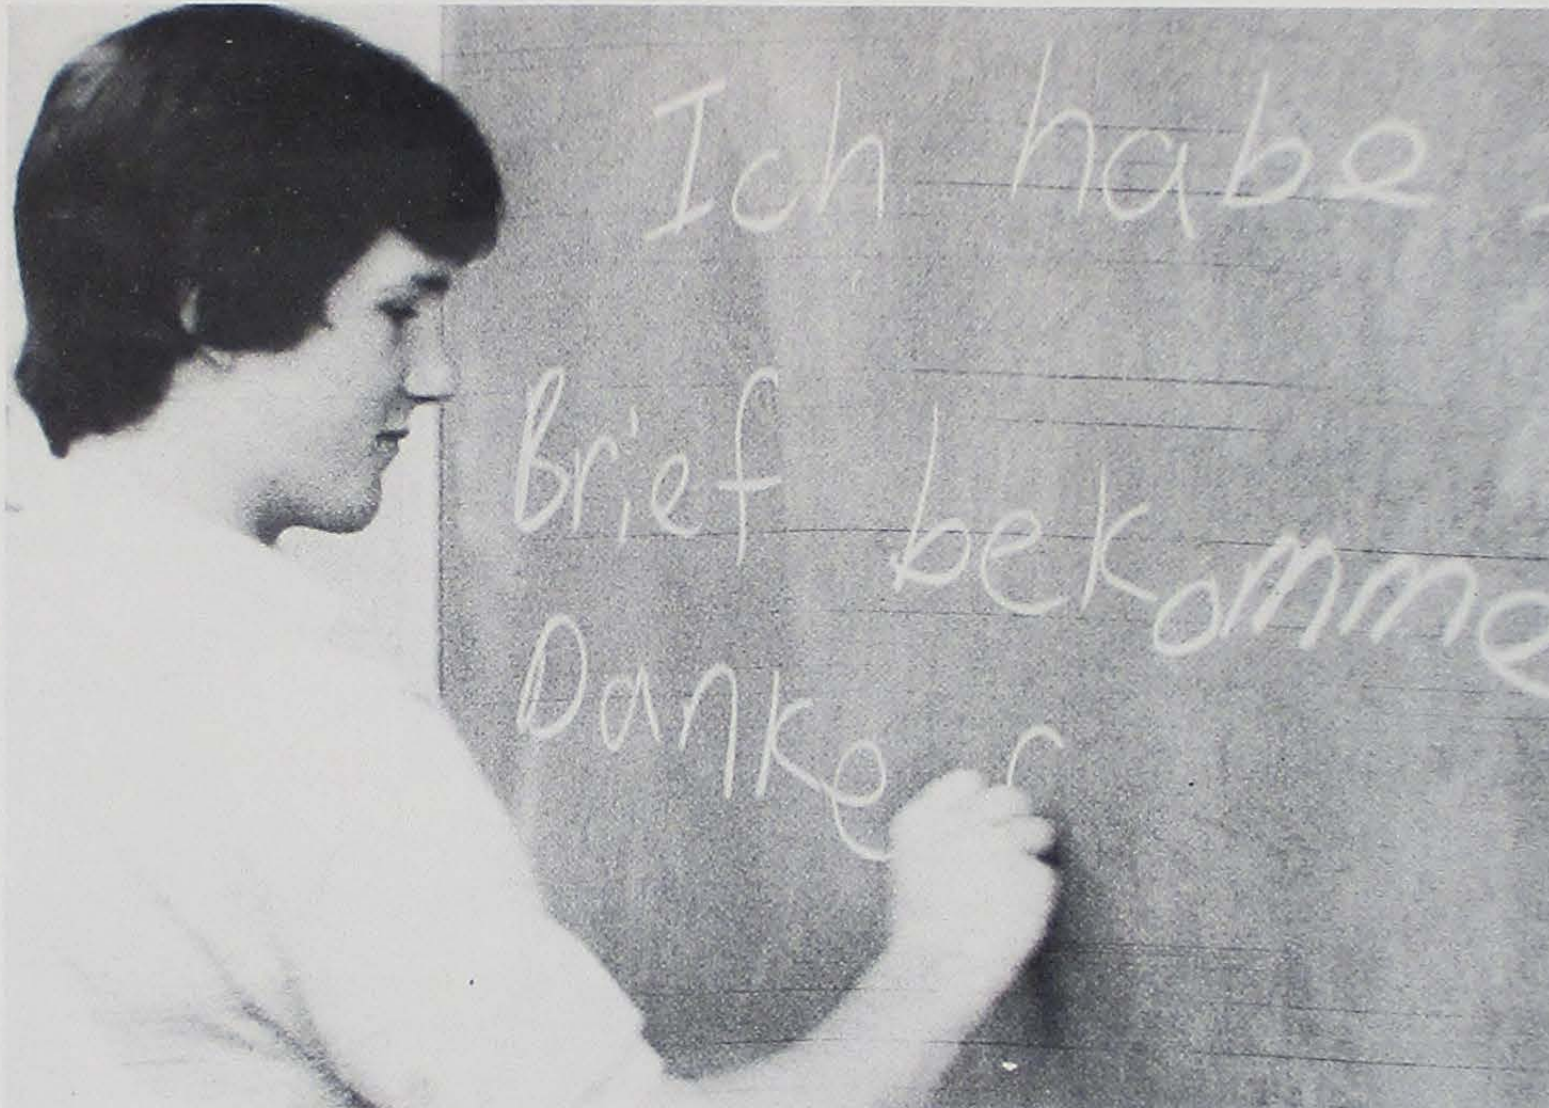 Ich habe
Brief bekomme
Danke